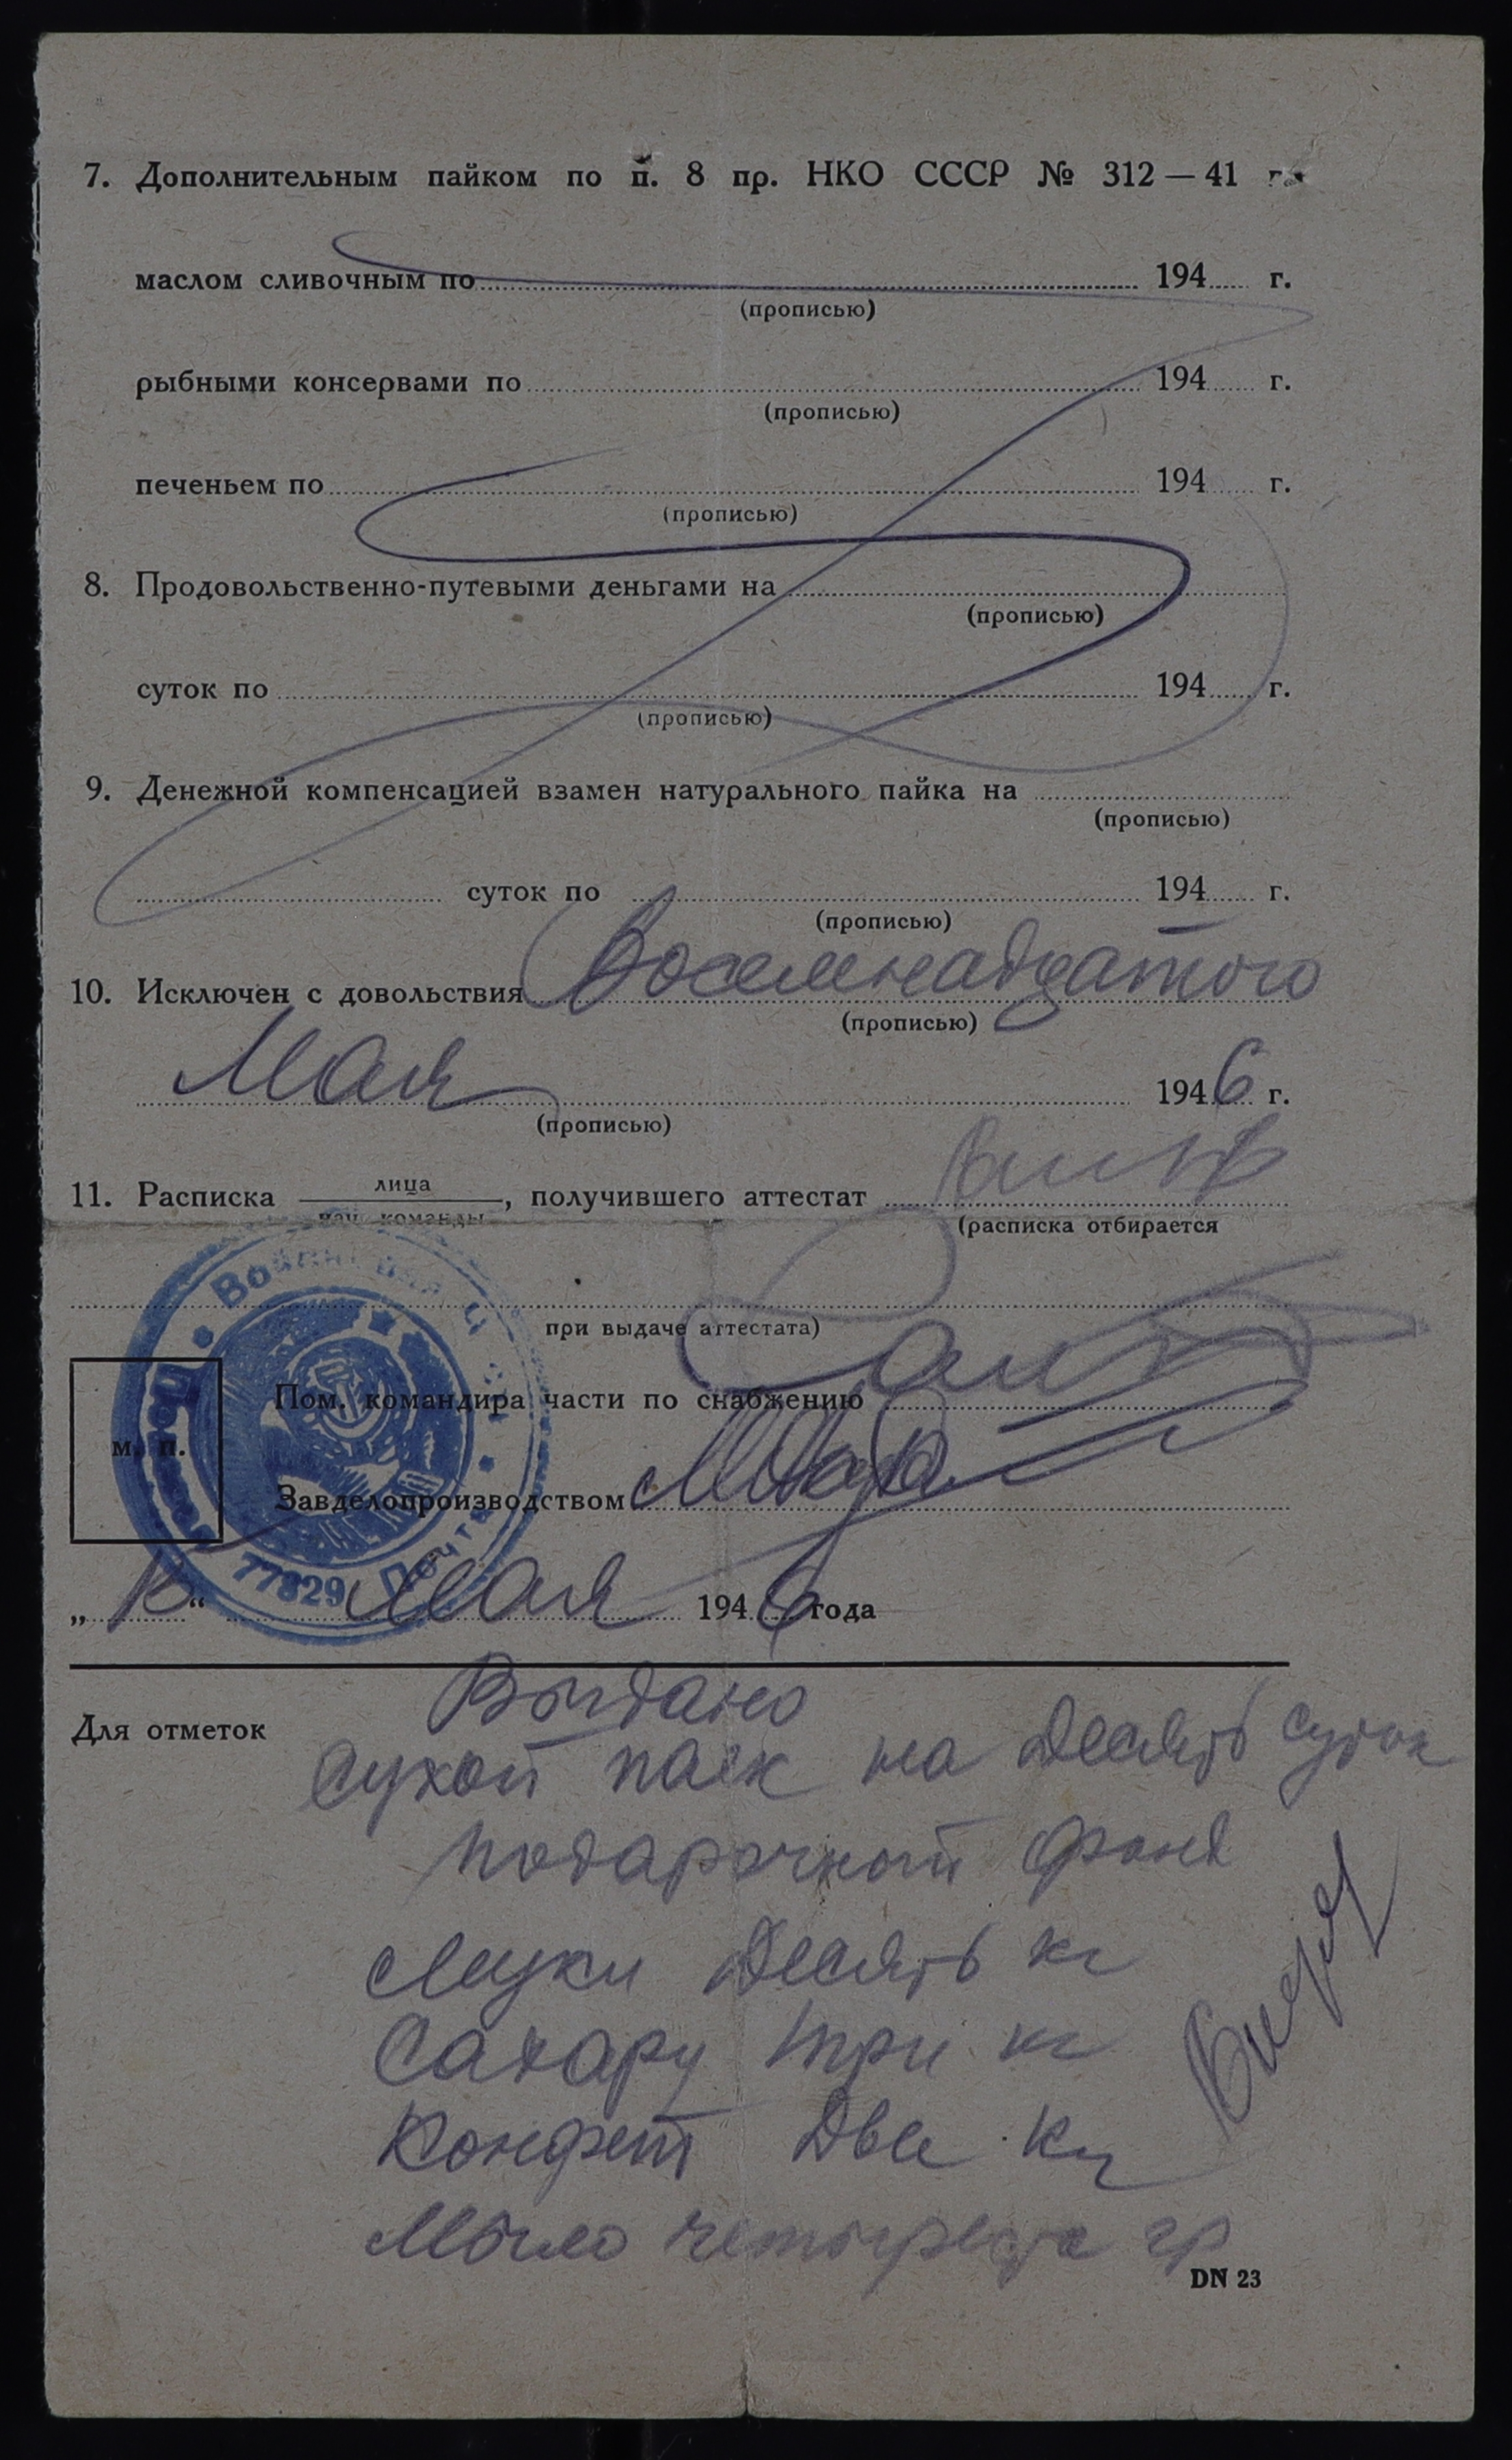 7. Дополнительным пайком по п. 8 пр. НКО СССР № 312 — 41 г.
маслом сливочным по 194 г.
(прописью)
рыбными консервами по 194 г.
(прописью)
печеньем по 194 г.
(прописью)
8. Продовольственно-путевыми деньгами на
(прописью)
суток по 194 г.
(прописью)
9. Денежной компенсацией взамен натурального пайка на
(прописью)
суток по 194 г.
(прописью)
10. Исключен с довольствия Восемнадцатого
(прописью)
Мая 1946 г.
(прописью)
11. Расписка лица
нач. команды
, получившего аттестат
(расписка отбирается
при выдаче аттестата)
Пом. командира части по снабжению
м. п.
Завделопроизводством
77829 Почта
„ “ мая 1946 года
Для отметок
Выдано
Сухой паек на Десять суток
подарочный фонд
Муки Десять кг
Сахару три кг
Конфет Две кг
Мыло четыреста гр
DN 23